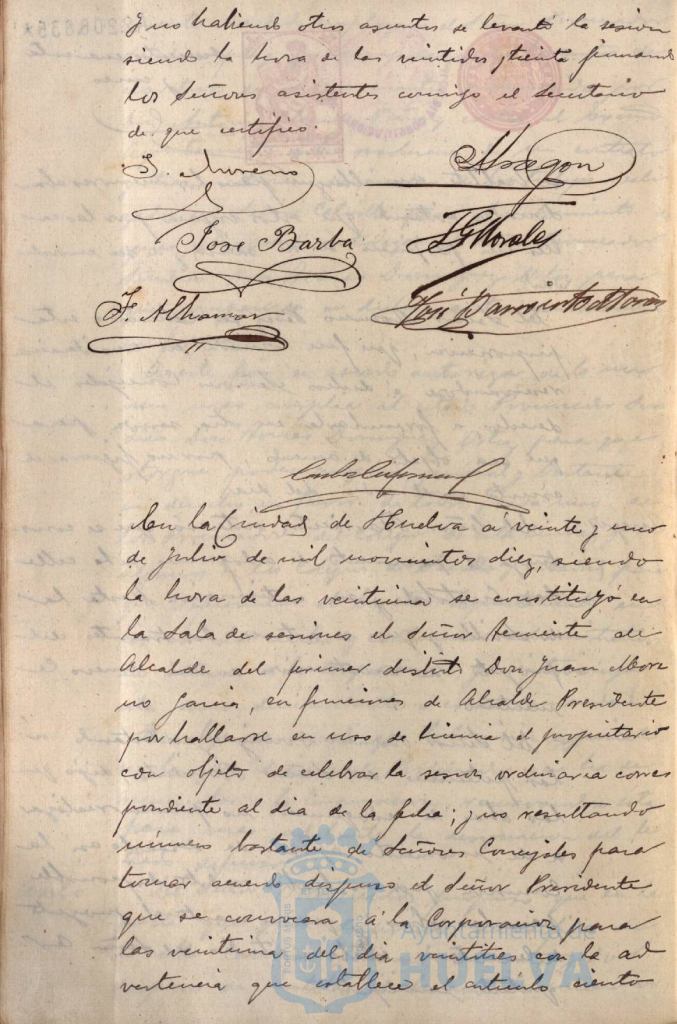 y no habiendo otros asuntos se levantó la sesion
siendo la hora de las veintidos y treinta firmando
los Señores asistentes conmigo el Secretario
de que certifico.
J. Moreno
Aragon
José Barba
J G Morales
F. Alhamar
José Barroso
En la Ciudad de Huelva á veinte y uno
de Julio de mil novecientos diez, siendo
la hora de las veintiuna se constituyó en
la Sala de sesiones el Señor Teniente de
Alcalde del primer distrito Don Juan More
no Garcia, en funciones de Alcalde Presidente
por hallarse en uso de licencia el propietario
con objeto de celebrar la sesion ordinaria corres
pondiente al dia de la fecha; y no resultando
número bastante de Señores Concejales para
tomar acuerdo dispuso el Señor Presidente
que se convocara á la Corporacion para
las veintiuna del dia veintitres con la ad
vertencia que establece el articulo ciento
Ayuntamiento de
HUELVA